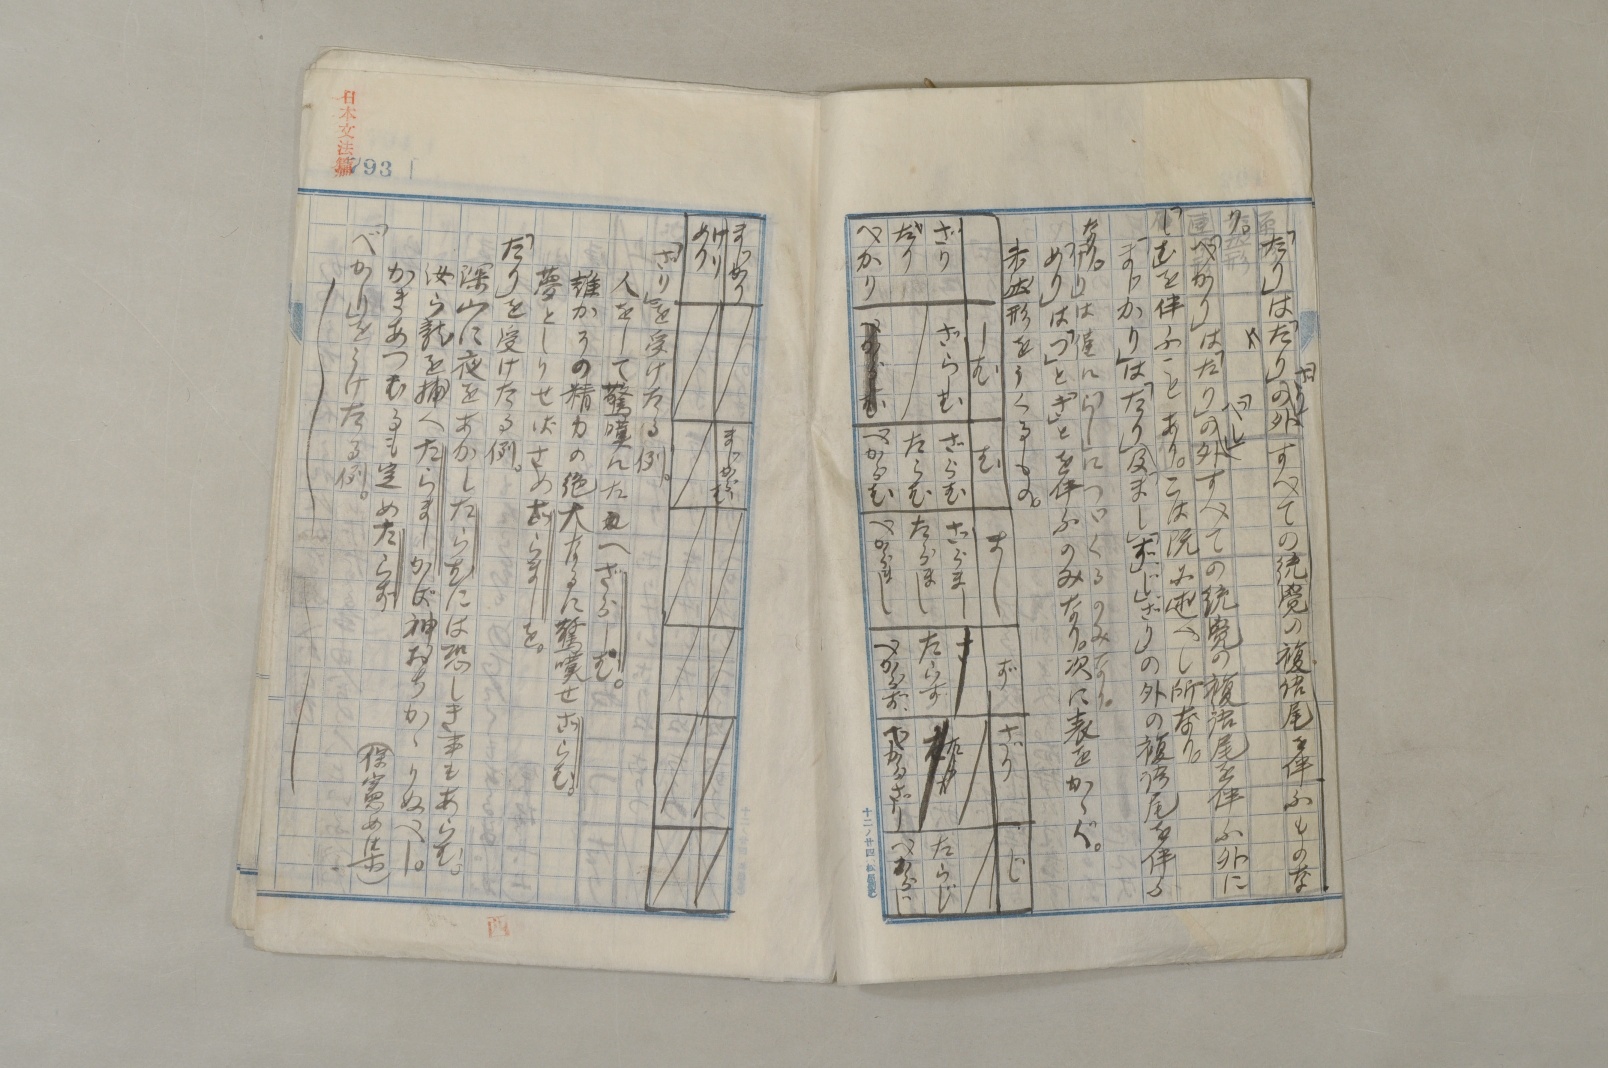 「たり」は「たり」の外すべての統覚の複語尾を伴ふものな
り。
「べかり」は「たり」の外すべての統覚の複語尾を伴ふ外に
「しむ」を伴ふことあり。こは既に述べし所なり。
「まじかり」は「たり」及「まし」「ず」「じ」「ざり」の外の複語尾を伴る
なり。
「けり」は僅に「らし」につゞくるのみなり。
「めり」は「つ」と「き」とを伴ふのみなり。次に表をかゝぐ。
未然形をうくるもの。
しむ
む
まし
ず
ざり
じ
ざり
ざらむ
ざらまし
たり
たらむ
たらまし
たらず
たらじ
べかり
べからむ
べからまし
べからず
べからざり
べからじ
十二ノ廿四
日本文法篇
793
まじかり
まじからむ
けり
めり
「ざり」を受けたる例。
人をして驚嘆にたへざらしむ。
誰かその精力の絶大なるに驚嘆せざらむ。
夢としりせばさめざらましを。
「たり」を受けたる例。
深山に夜をあかしたらむには恐しき事もあらむ。
汝ら龍を捕へたらましかば神おちかゝりぬべし。
かきあつむるも定めたらず
(保憲女集)
「べかり」をうけたる例。
四